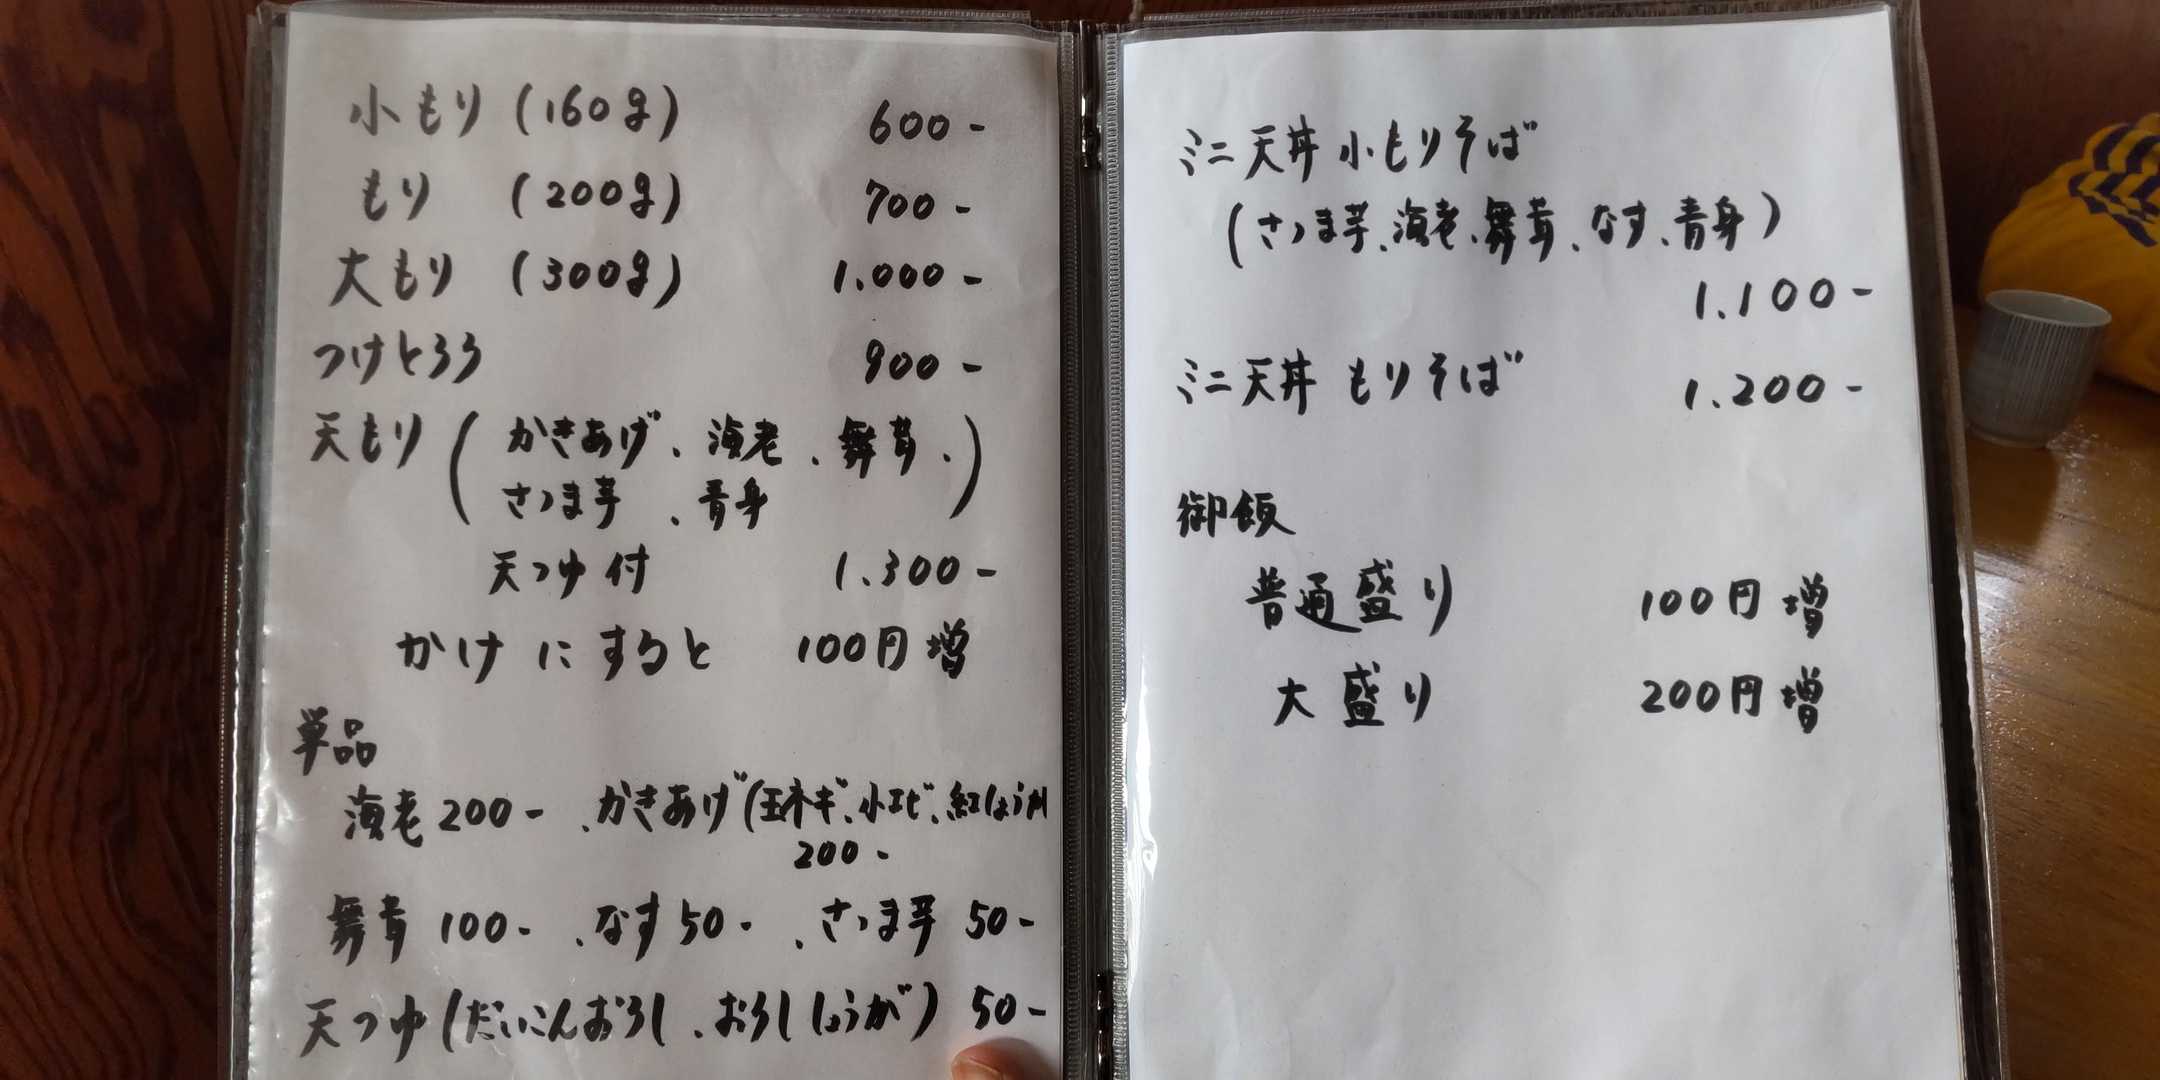 小もり (160g) 600-
もり (200g) 700-
大もり (300g) 1.000-
つけとろろ 900-
天もり (かきあげ、海老、舞茸、
さつま芋、青身)
天つゆ付 1.300-
かけにすると 100円増
単品
海老 200-、かきあげ(玉ネギ、小エビ、紅しょうが)
200-
舞茸 100-、なす 50-、さつま芋 50-
天つゆ(だいこんおろし、おろししょうが) 50-
ミニ天丼 小もりそば
(さつま芋、海老、舞茸、なす、青身)
1.100-
ミニ天丼 もりそば 1.200-
御飯
普通盛り 100円増
大盛り 200円増